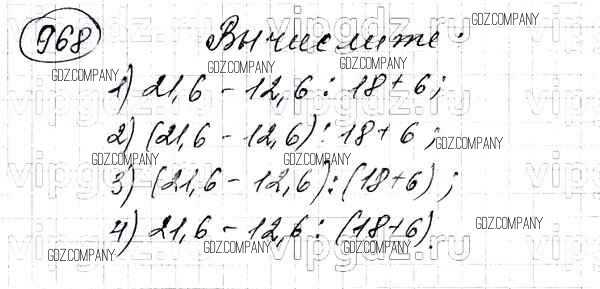 968 Вычислите:
1) 21,6 - 12,6 : 18 + 6;
2) (21,6 - 12,6) : 18 + 6;
3) (21,6 - 12,6) : (18 + 6);
4) 21,6 - 12,6 : (18 + 6).
GDZ.COMPANY
vipgdz.ru